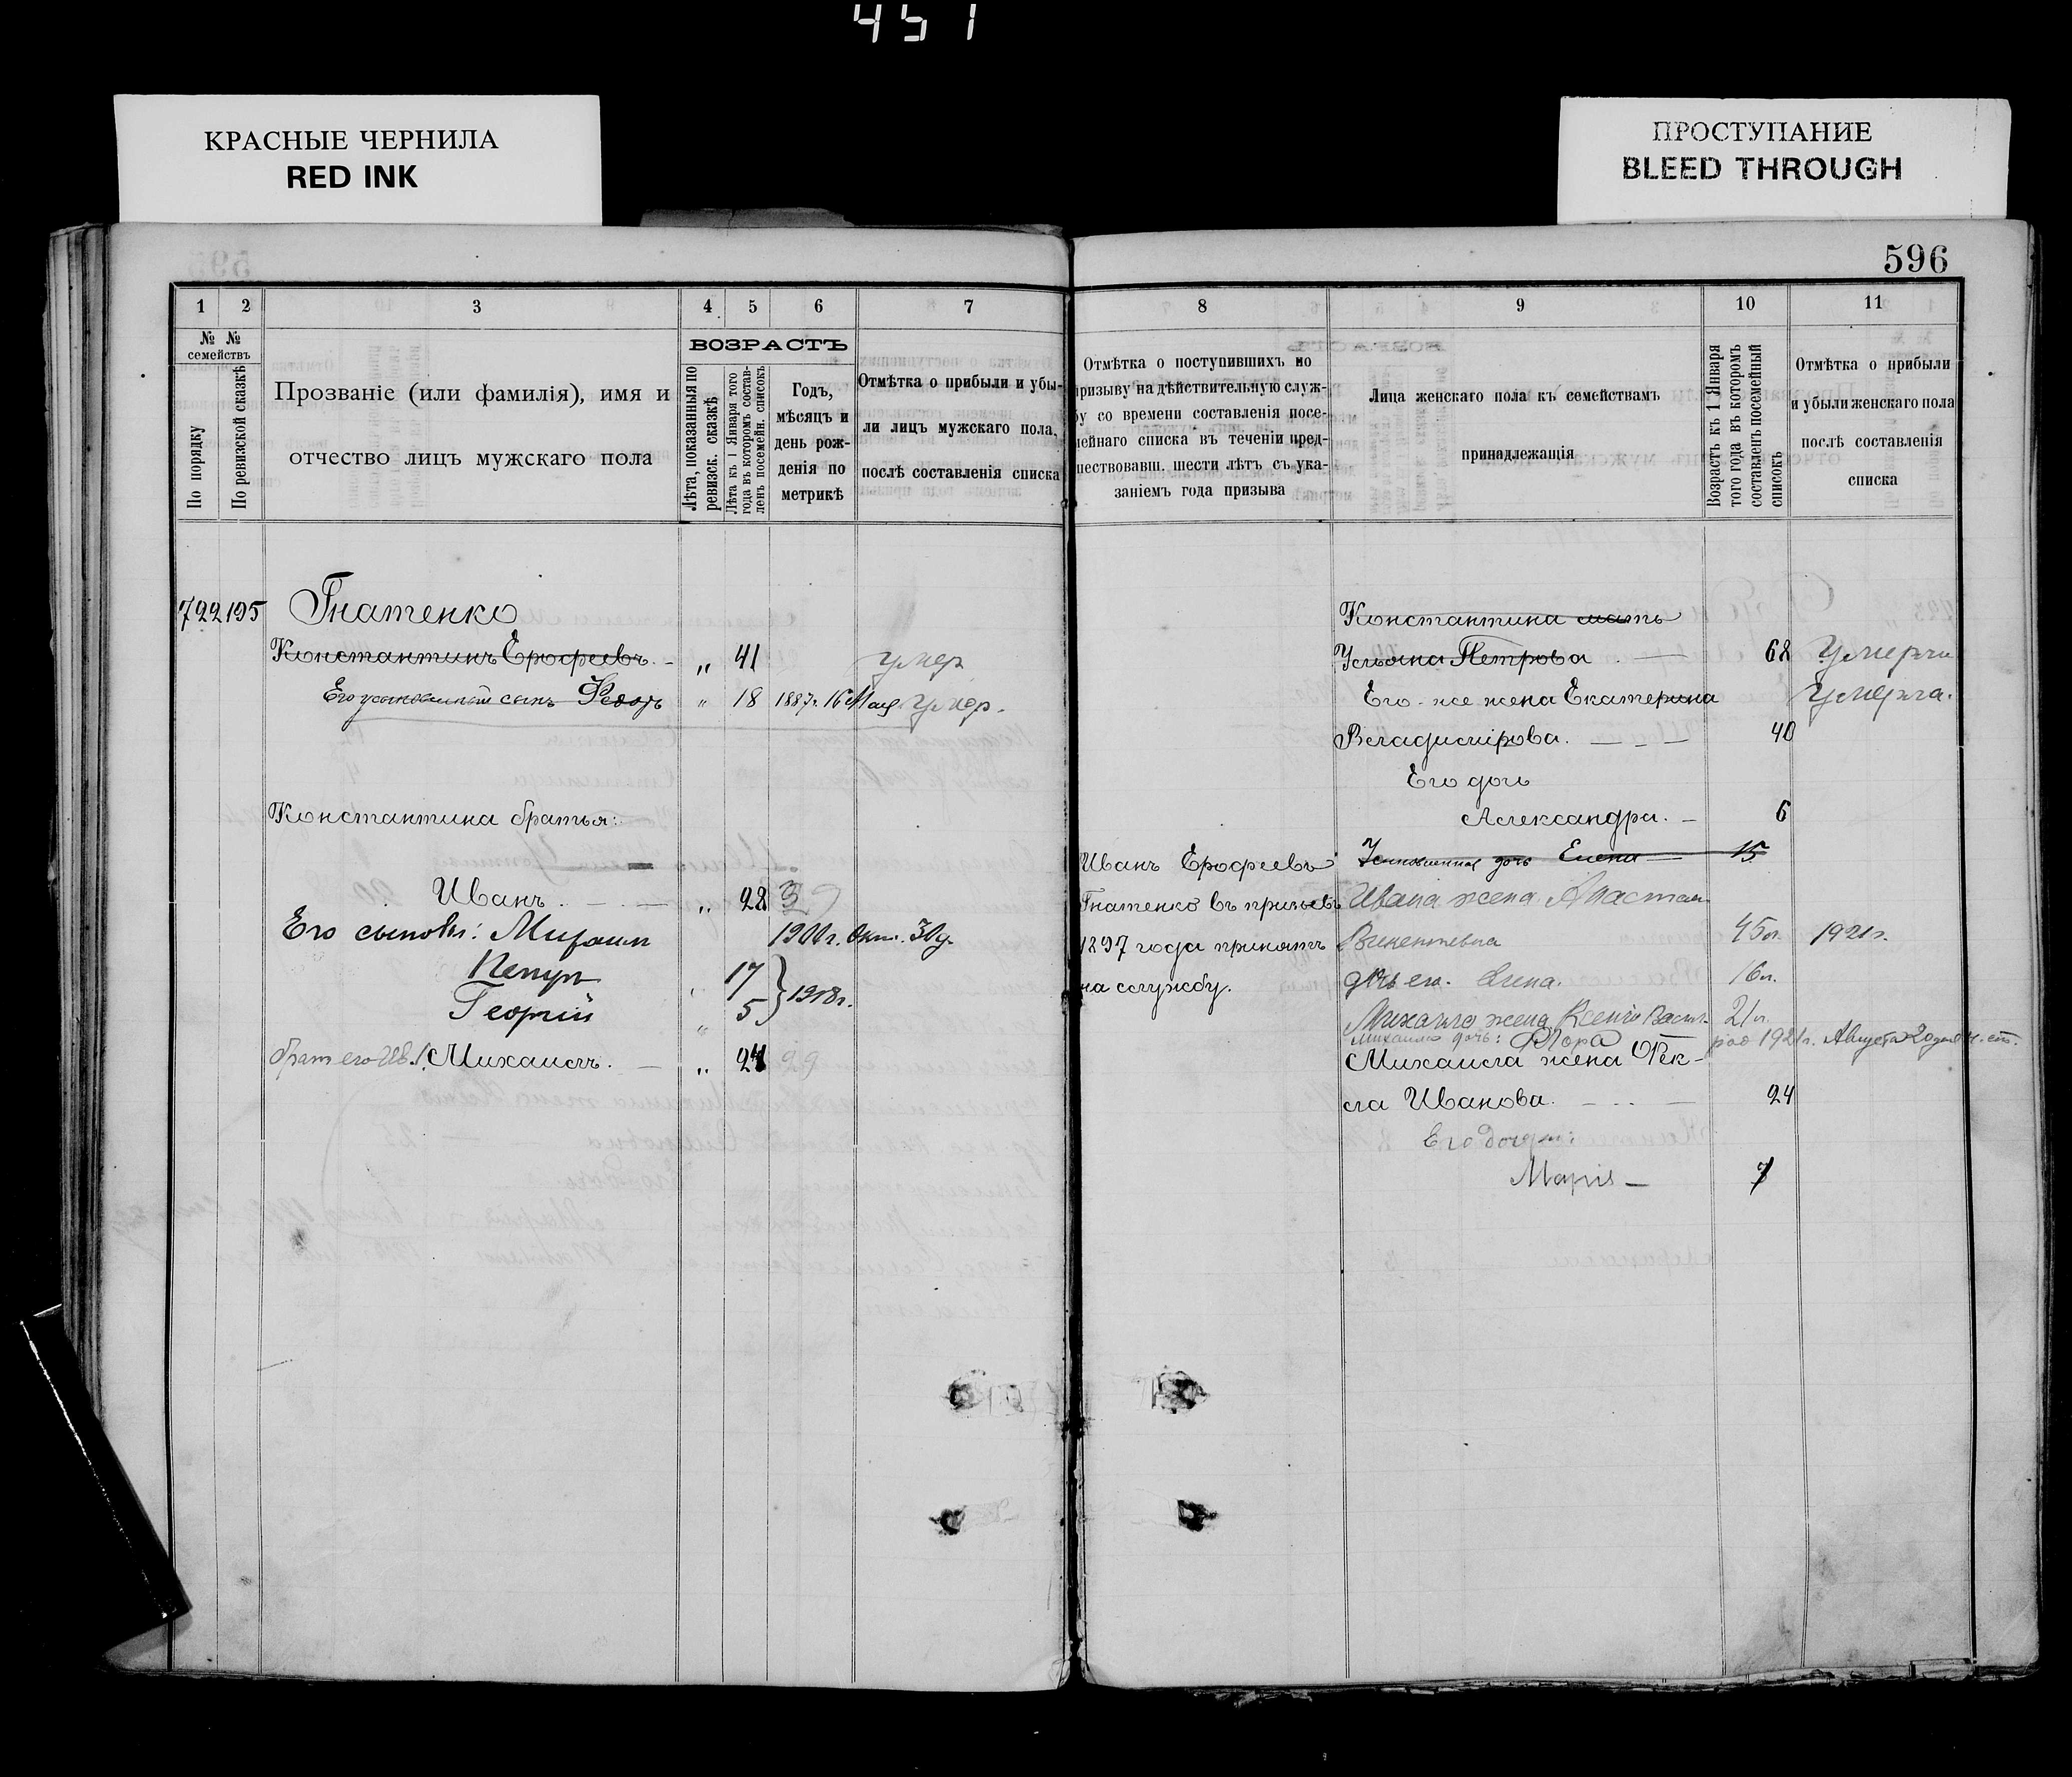 451
КРАСНЫЕ ЧЕРНИЛА
RED INK
ПРОСТУПАНИЕ
BLEED THROUGH
596
1 2 3 4 5 6 7
№ № семействъ
По порядку
По ревизской сказкѣ
Прозваніе (или фамилія), имя и
отчество лицъ мужскаго пола
ВОЗРАСТЪ
Лѣта, показанныя по
ревизск. сказкѣ
Лѣта къ 1 Января того
года въ которомъ состав-
ленъ посемейн. списокъ
Годъ,
мѣсяцъ и
день рож-
денія по
метрикѣ
Отмѣтка о прибыли и убы-
ли лицъ мужскаго пола,
послѣ составленія списка
722 195 Гнатенко
Константинъ Ерофеевъ. - „ 41 умер
Его усыновленный сынъ Федоръ „ 18 1887г. 16 Мая умер.
Константина братья:
Иванъ. „ 28
Его сыновья: Михаил 1900г. Окт. 30 д.
Петръ 17
Георгій „ 5 } 1918г.
брат его Ив. Михаилъ. „ 24 29
8 9 10 11
Отмѣтка о поступившихъ по
призыву на дѣйствительную служ-
бу со времени составленія посе-
мейнаго списка въ теченіи пред-
шествовавш. шести лѣтъ съ ука-
заніемъ года призыва
Лица женскаго пола къ семействамъ
принадлежащія
Возрастъ къ 1 Января
того года въ которомъ
составленъ посемейный
списокъ
Отмѣтка о прибыли
и убыли женскаго пола
послѣ составленія
списка
Константина мать
Ульяна Петрова. 68 Умерла
Его-же жена Екатерина Умерла.
Владимірова. 40
Его дочь
Александра. - 6
Иванъ Ерофеевъ Усыновленная дочь Елена 15
Гнатенко въ призывъ Ивана жена Анастас
1897 года принятъ Викентевна 45л. 1921г.
на службу. дочь его. Елена. 16л.
Михаила жена Ксенія Васил. 21л.
Михаила дочь: Нора род 1921г. Августа 20 дня н. ст.
Михаила жена Фек-
ла Иванова. 24
Его дочери:
Марія - 7